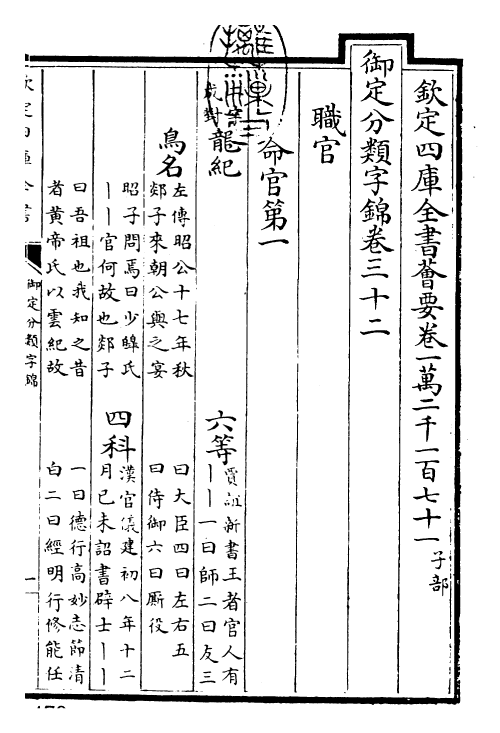 欽定四庫全書薈要卷一萬二千一百七十一 子部
御定分類字錦卷三十二
職官
命官第一
成對 龍紀
六等 賈誼新書王者官人有
丨丨一曰師二曰友三
曰大臣四曰左右五
曰侍御六曰厮役
鳥名 左傳昭公十七年秋
郯子來朝公與之宴
昭子問焉曰少皥氏
丨丨官何故也郯子
曰吾祖也我知之昔
者黄帝氏以雲紀故
四科 漢官儀建初八年十二
月已未詔書辟士丨丨
一曰德行高妙志節清
白二曰經明行修能任
御定分類字錦
一